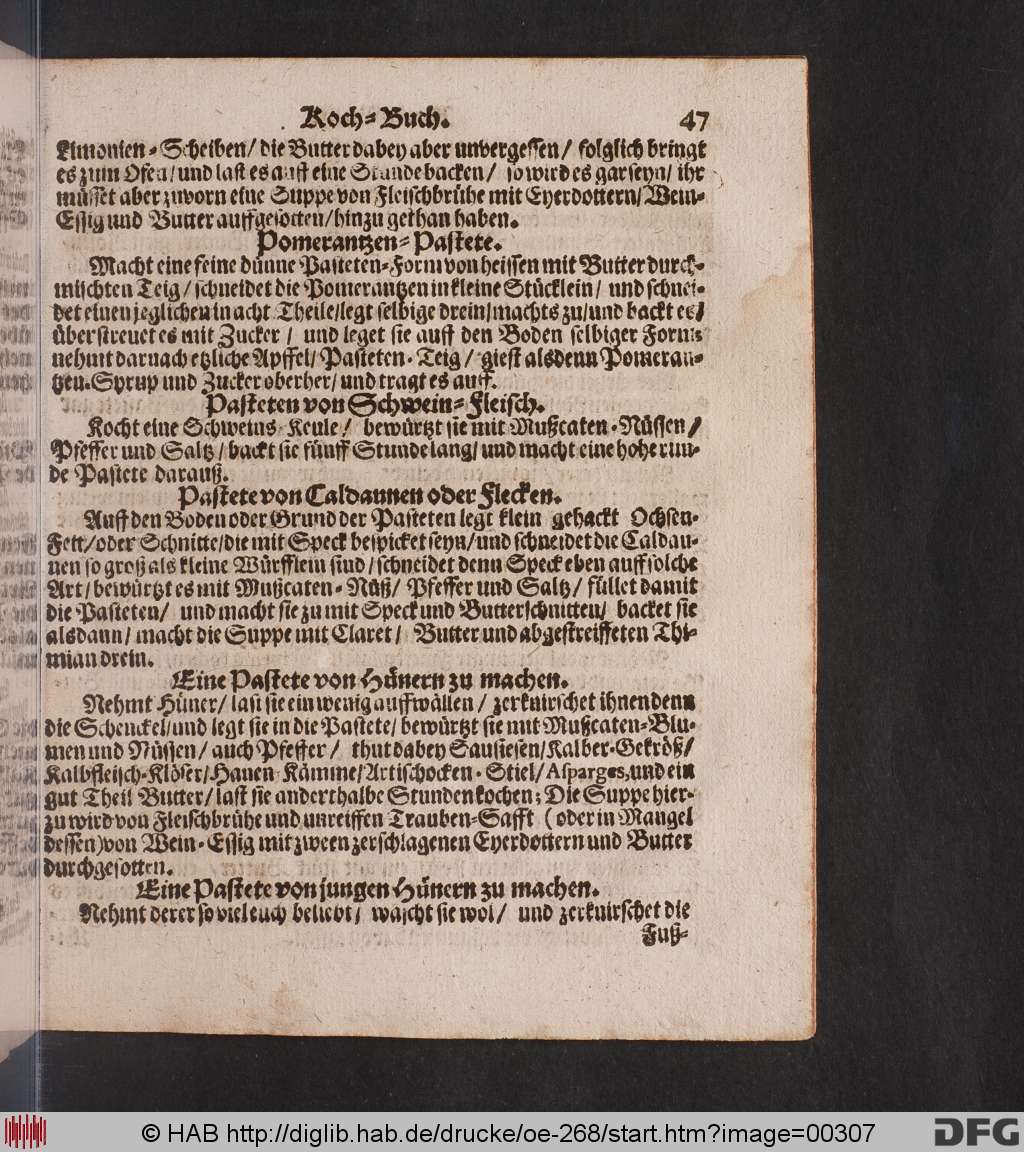 Koch-Buch. 47
Limonien-Scheiben/ die Butter dabey aber unvergessen/ folglich bringt
es zum Ofen/ und last es auff eine Stunde backen/ so wird es gar seyn/ ihr
müsset aber zuvorn eine Suppe von Fleischbrühe mit Eyerdottern/ Wein-
Essig und Butter auffgesotten/ hinzu gethan haben.
Pomerantzen-Pastete.
Macht eine feine dünne Pasteten-Form von heissen mit Butter durck-
mischten Teig/ schneidet die Pomerantzen in kleine Stücklein/ und schnei-
det einen jeglichen in acht Theile/ legt selbige drein/ machts zu/ und backt es/
überstreuet es mit Zucker/ und leget sie auff den Boden selbiger Forms
nehmt darnach etzliche Apffel/ Pasteten-Teig/ giest alsdenn Pomeran-
tzen-Syrup und Zucker oberher/ und tragt es auff.
Pasteten von Schwein-Fleisch.
Kocht eine Schweins-Keule/ bewürtzt sie mit Mußcaten-Nüssen/
Pfeffer und Saltz/ backt sie fünff Stunde lang/ und macht eine hohe run-
de Pastete darauß.
Pastete von Caldaunen oder Flecken.
Auff den Boden oder Grund der Pasteten legt klein gehackt Ochsen-
Fett/ oder Schnitte/ die mit Speck bespicket seyn/ und schneidet die Caldau-
nen so groß als kleine Würfflein sind/ schneidet denn Speck eben auff solche
Art/ bewürtzt es mit Mußcaten-Nüß/ Pfeffer und Saltz/ füllet damit
die Pasteten/ und macht sie zu mit Speck und Butterschnitten/ backet sie
alsdann/ macht die Suppe mit Claret/ Butter und abgestreiffeten Thi-
mian drein.
Eine Pastete von Hünern zu machen.
Nehmt Hüner/ last sie ein wenig auffwällen/ zerknirschet ihnen denn
die Schenckel/ und legt sie in die Pastete/ bewürtzt sie mit Mußcaten-Blu-
men und Nüssen/ auch Pfeffer/ thut dabey Sausiesen/ Kalber-Gekröß/
Kalbfleisch-Klöser/ Hanen-Kämme/ Artischocken-Stiel/ Asparges, und ein
gut Theil Butter/ last sie anderthalbe Stunden kochen; Die Suppe hier-
zu wird von Fleischbrühe und unreiffen Trauben-Safft (oder in Mangel
dessen) von Wein-Essig mit zween zerschlagenen Eyerdottern und Butter
durchgesotten.
Eine Pastete von jungen Hünern zu machen.
Nehmt derer so viel euch beliebt/ wascht sie wol/ und zerknirschet die
Fuß-
© HAB http://diglib.hab.de/drucke/oe-268/start.htm?image=00307
DFG